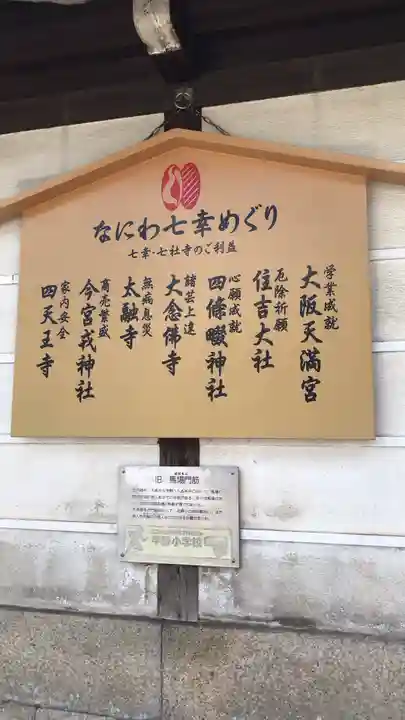 なにわ七幸めぐり
七幸・七社寺のご利益
学業成就
大阪天満宮
厄除祈願
住吉大社
心願成就
四條畷神社
諸芸上達
大念佛寺
無病息災
太融寺
商売繁盛
今宮戎神社
家内安全
四天王寺
旧 馬場門筋
平野小学校